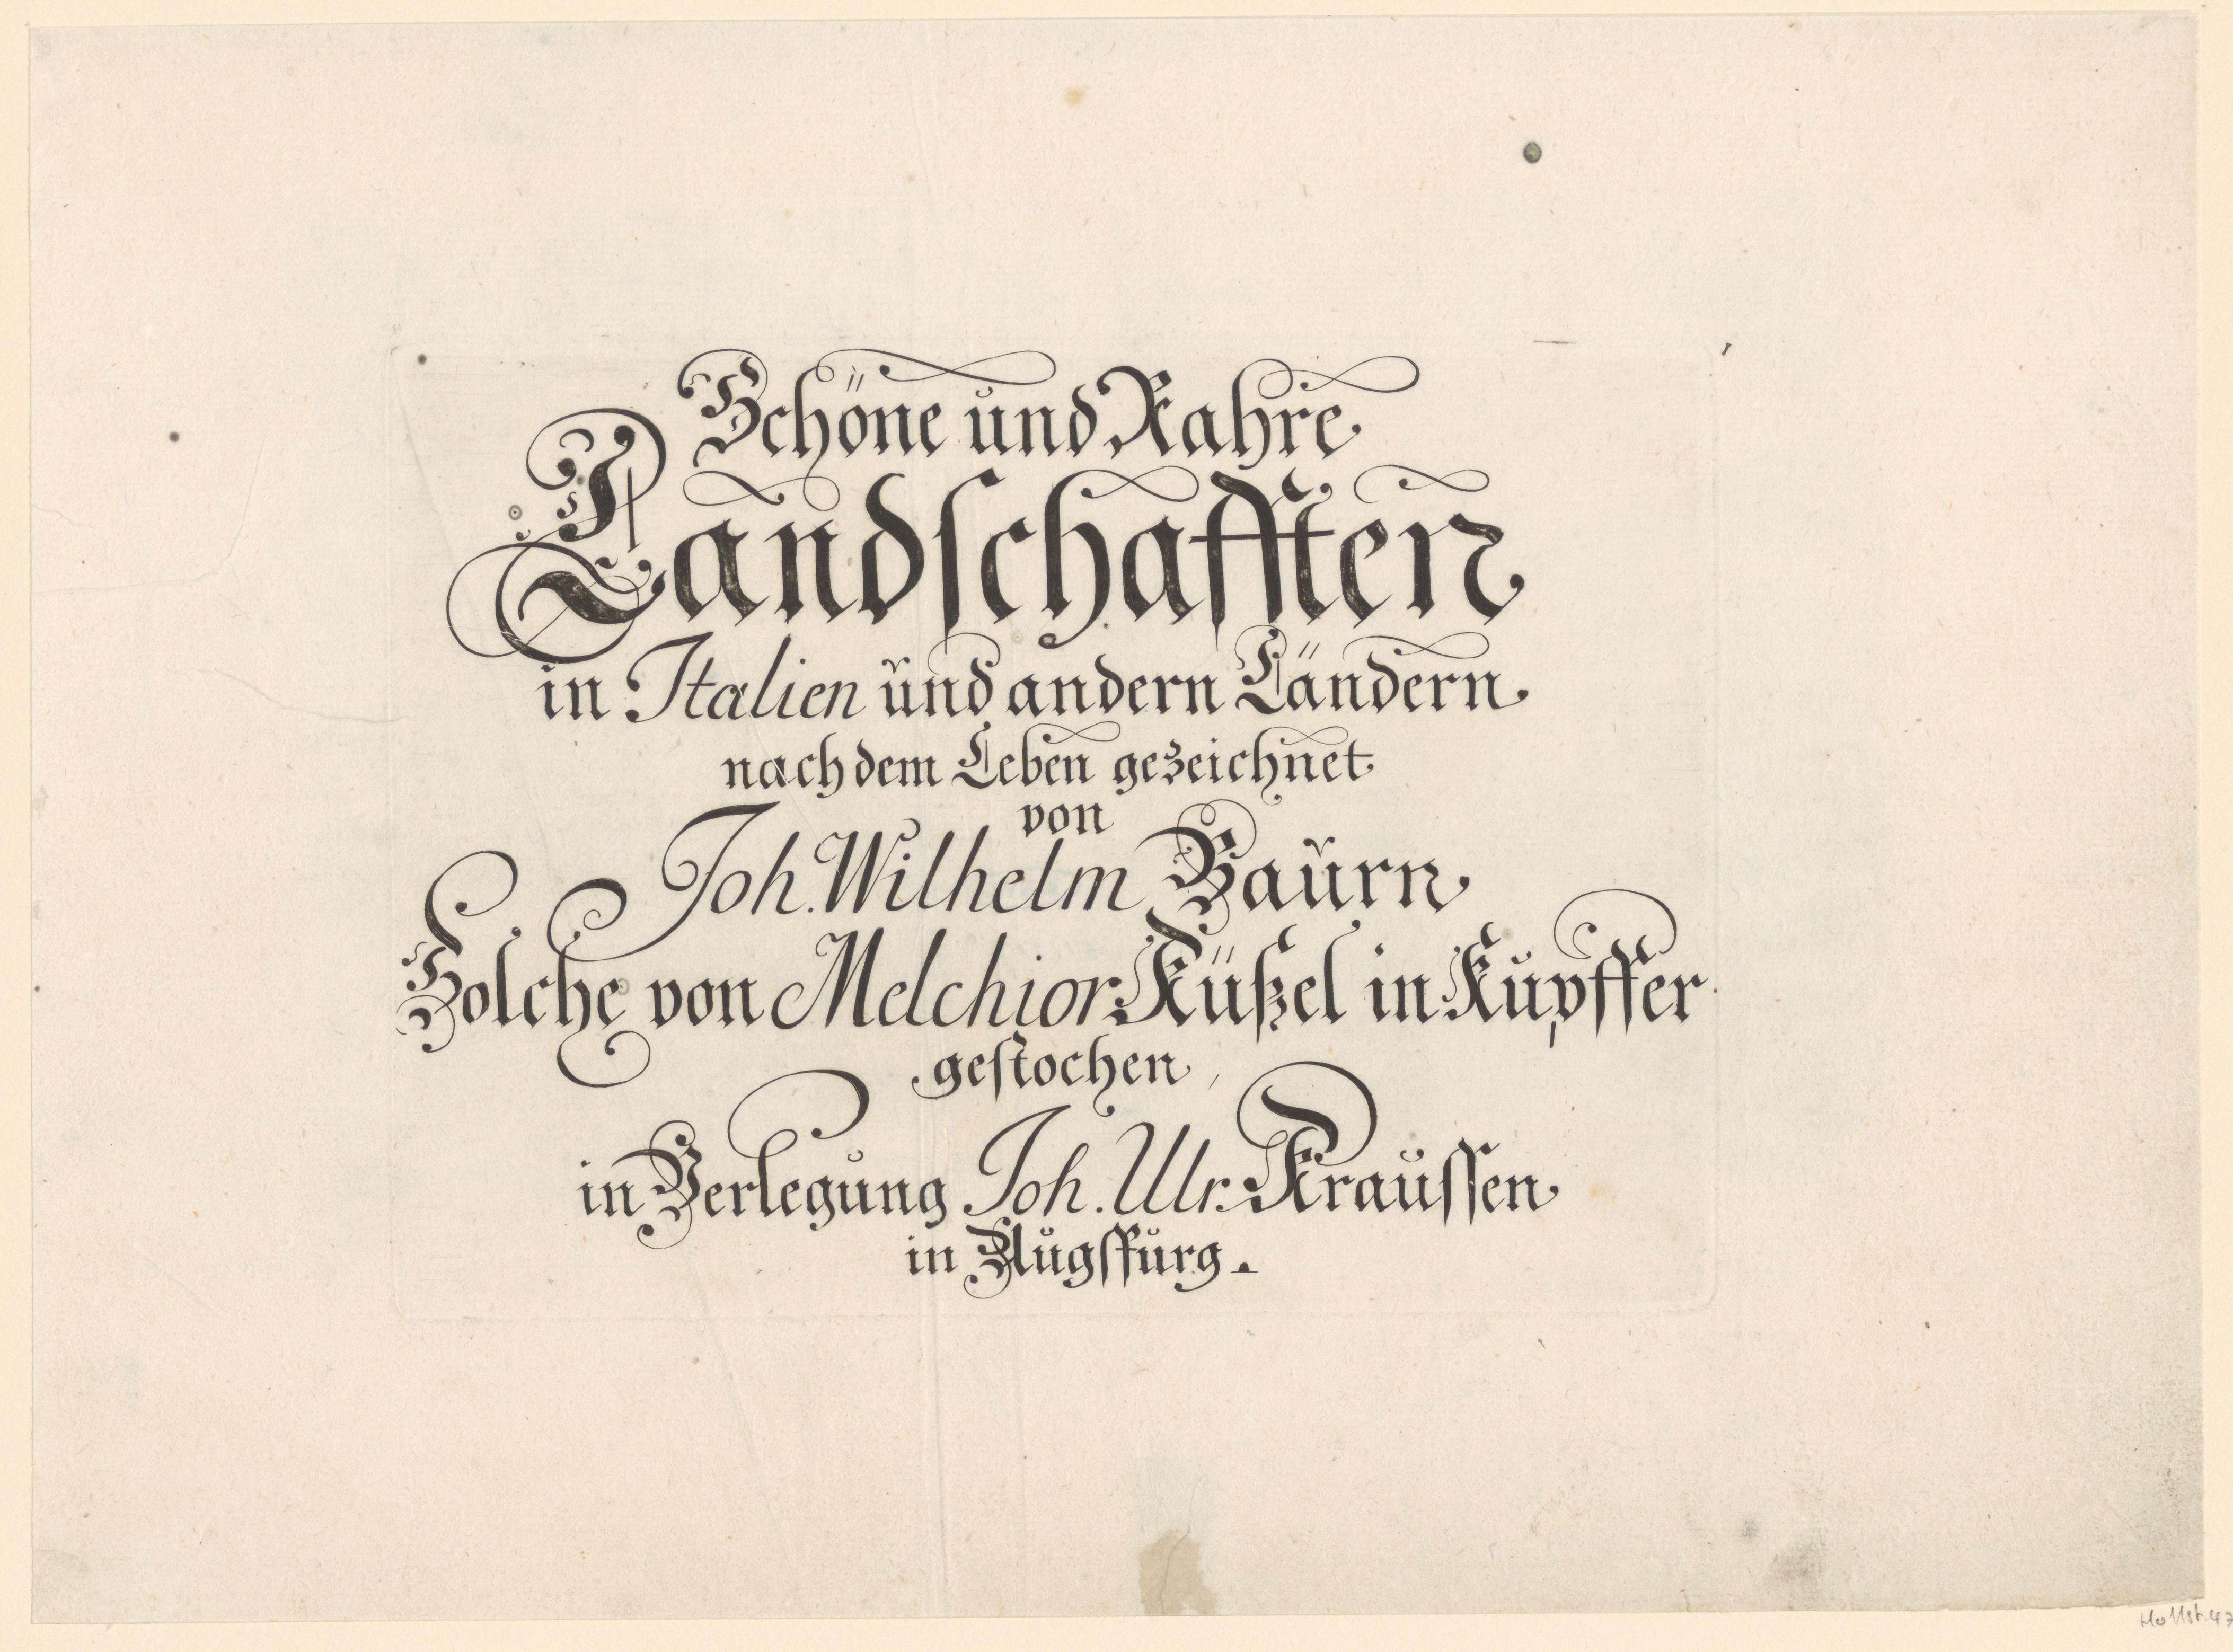 Schöne und Rahre
Landschafften
in Italien und andern Ländern
nach dem Leben gezeichnet
von
Joh. Wilhelm Baurn
Solche von Melchior Küßel in Kupffer
gestochen
in Verlegung Joh. Ulr. Kraussen
in Augspurg.
Hollst. 47